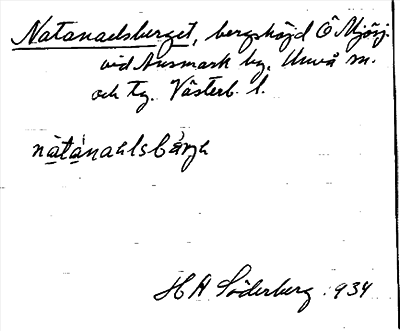 Natanaelsberget, bergshöjd Ö Mjösj.
vid Ansmark by, Umeå sn.
och tg. Västerb. l.
nàtánaɐlsbæ̀rjɐ
H A Söderberg 934